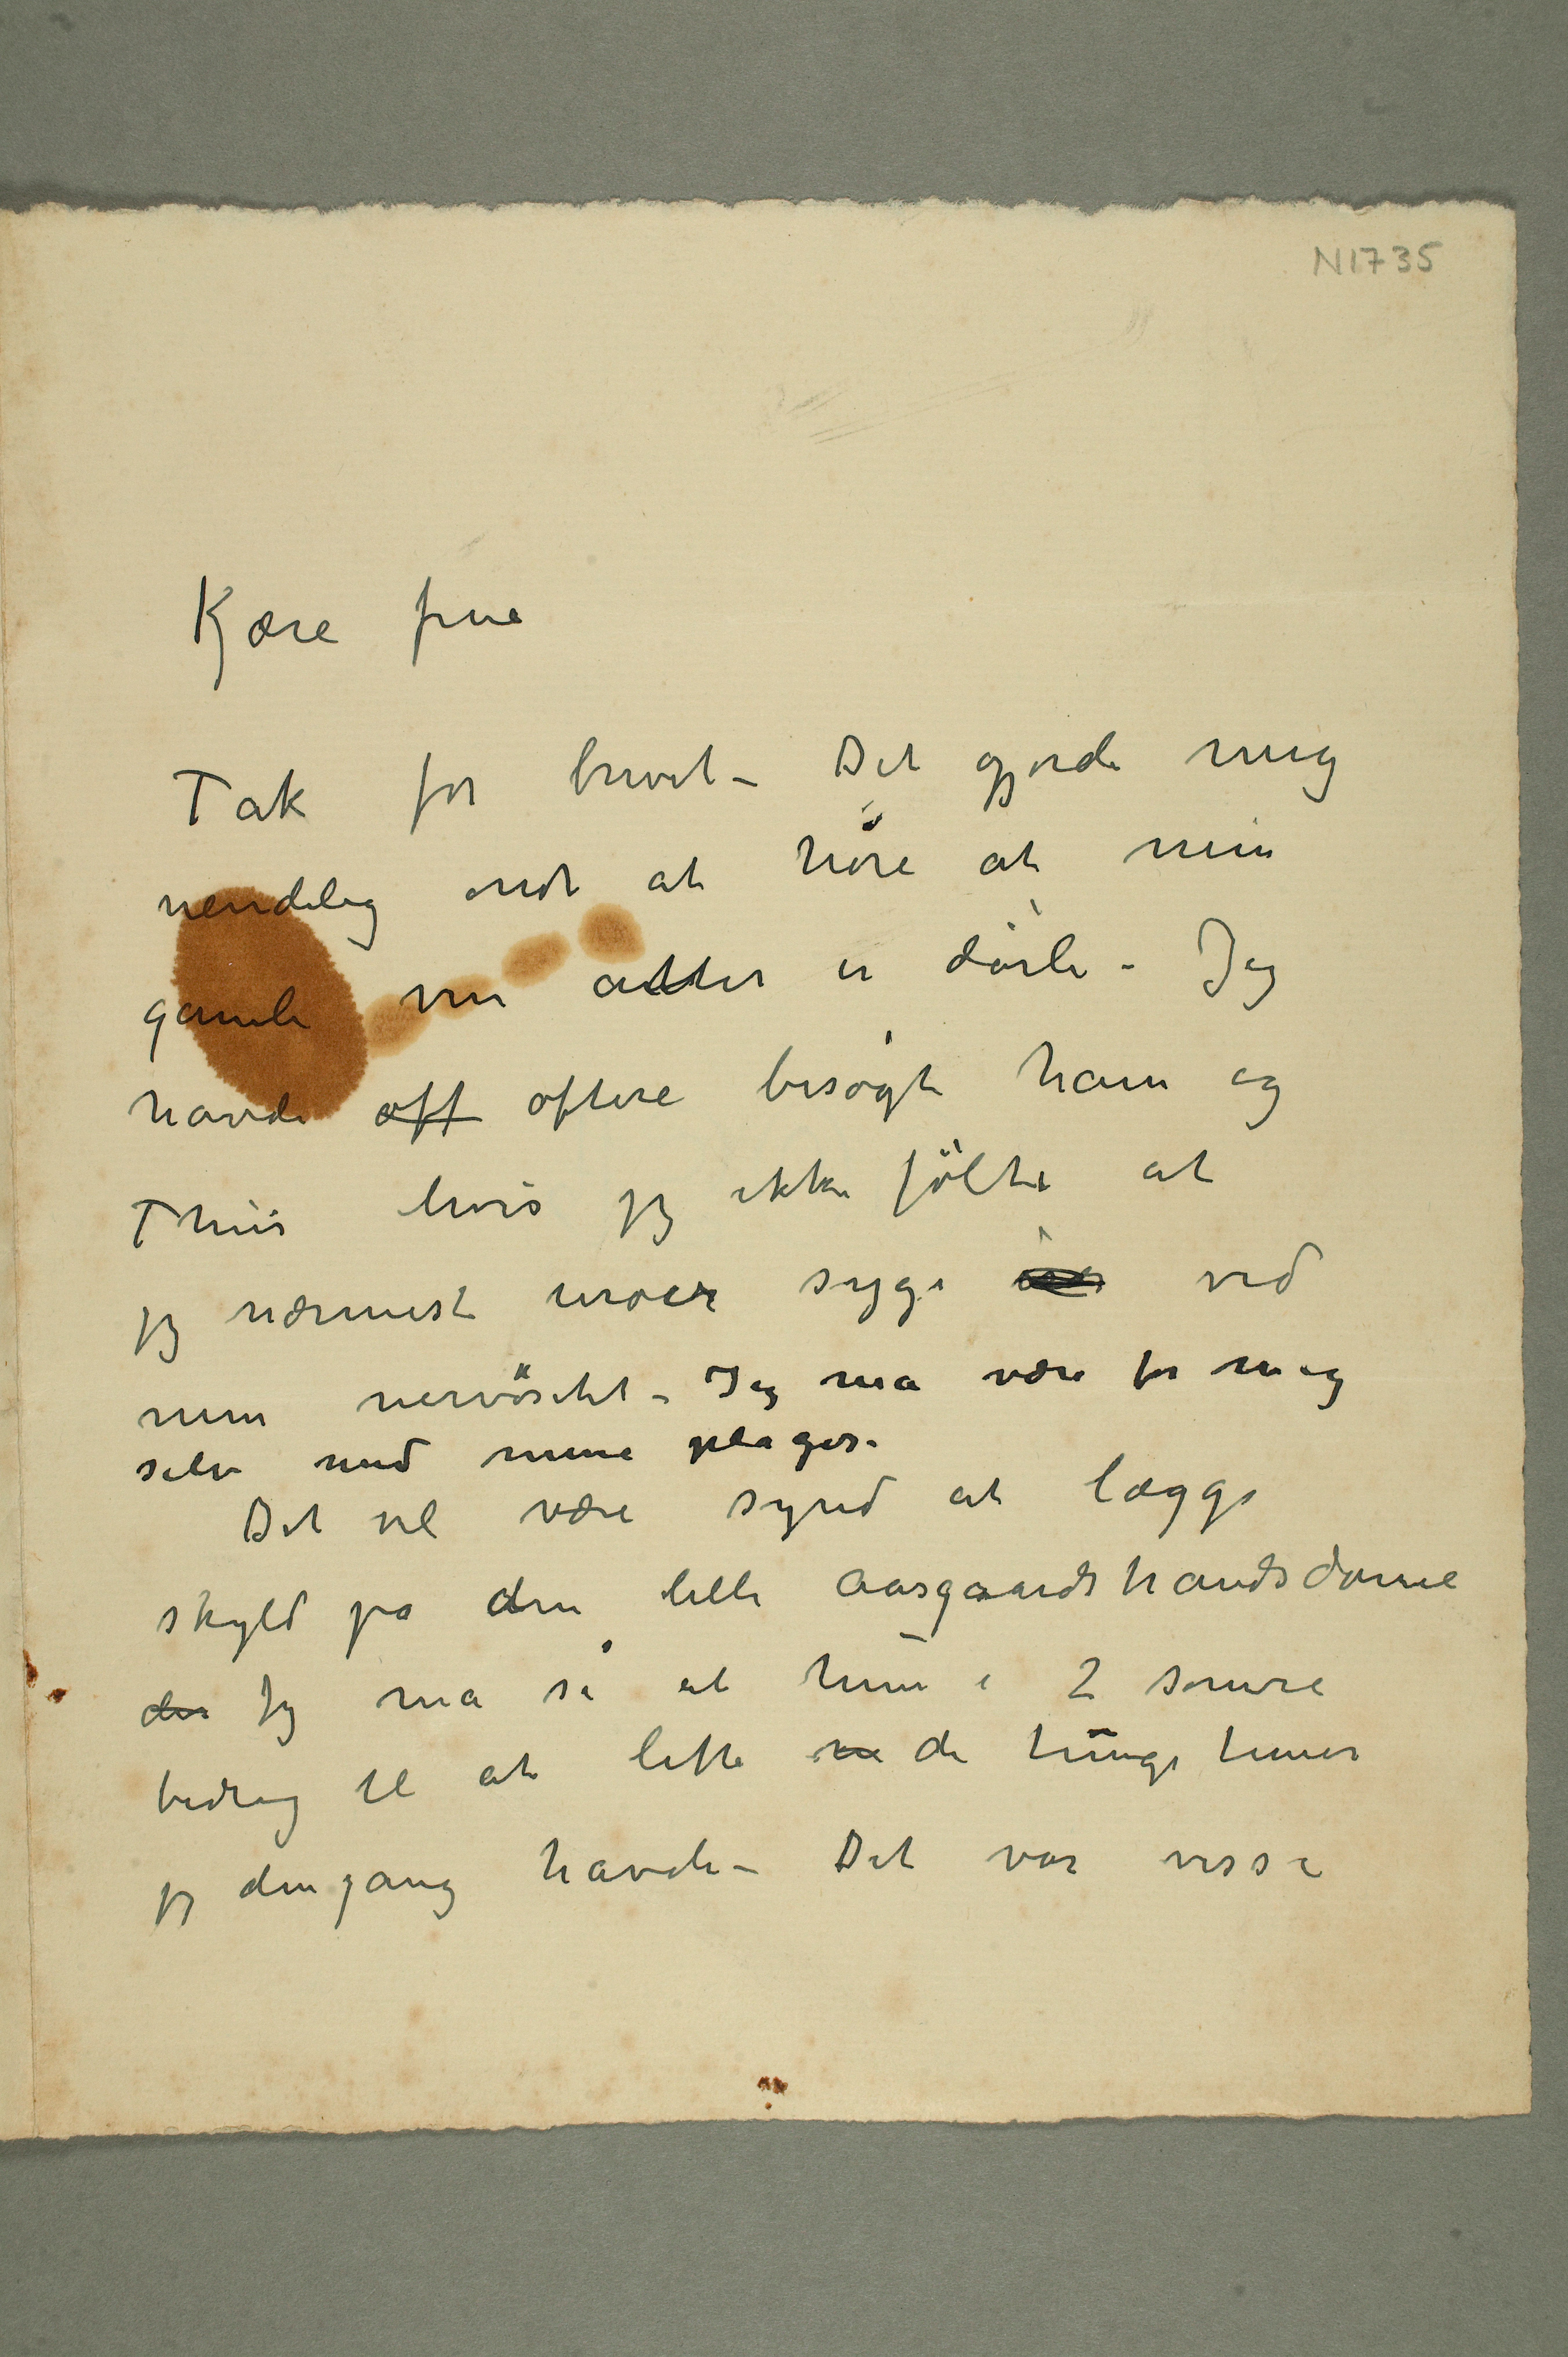 N1735
Kjære frue
Tak for brevet – Det gjorde mig
uendelig ondt at høre at min
gamle ven atter er dårli – Jeg
havde off oftere besøgt ham og
Thiis hvis jeg ikke følte at
jeg nærmest uroer syge ved
min nervøsitet – Jeg må være for mig
selv med mine plager.
Det vil være synd at lægge
skyld på den lille Aasgaardstrandsdame
der Jeg må si at hun i 2 somre
bidrog til at lette de tunge timer
jeg dengang havde – Det var visse